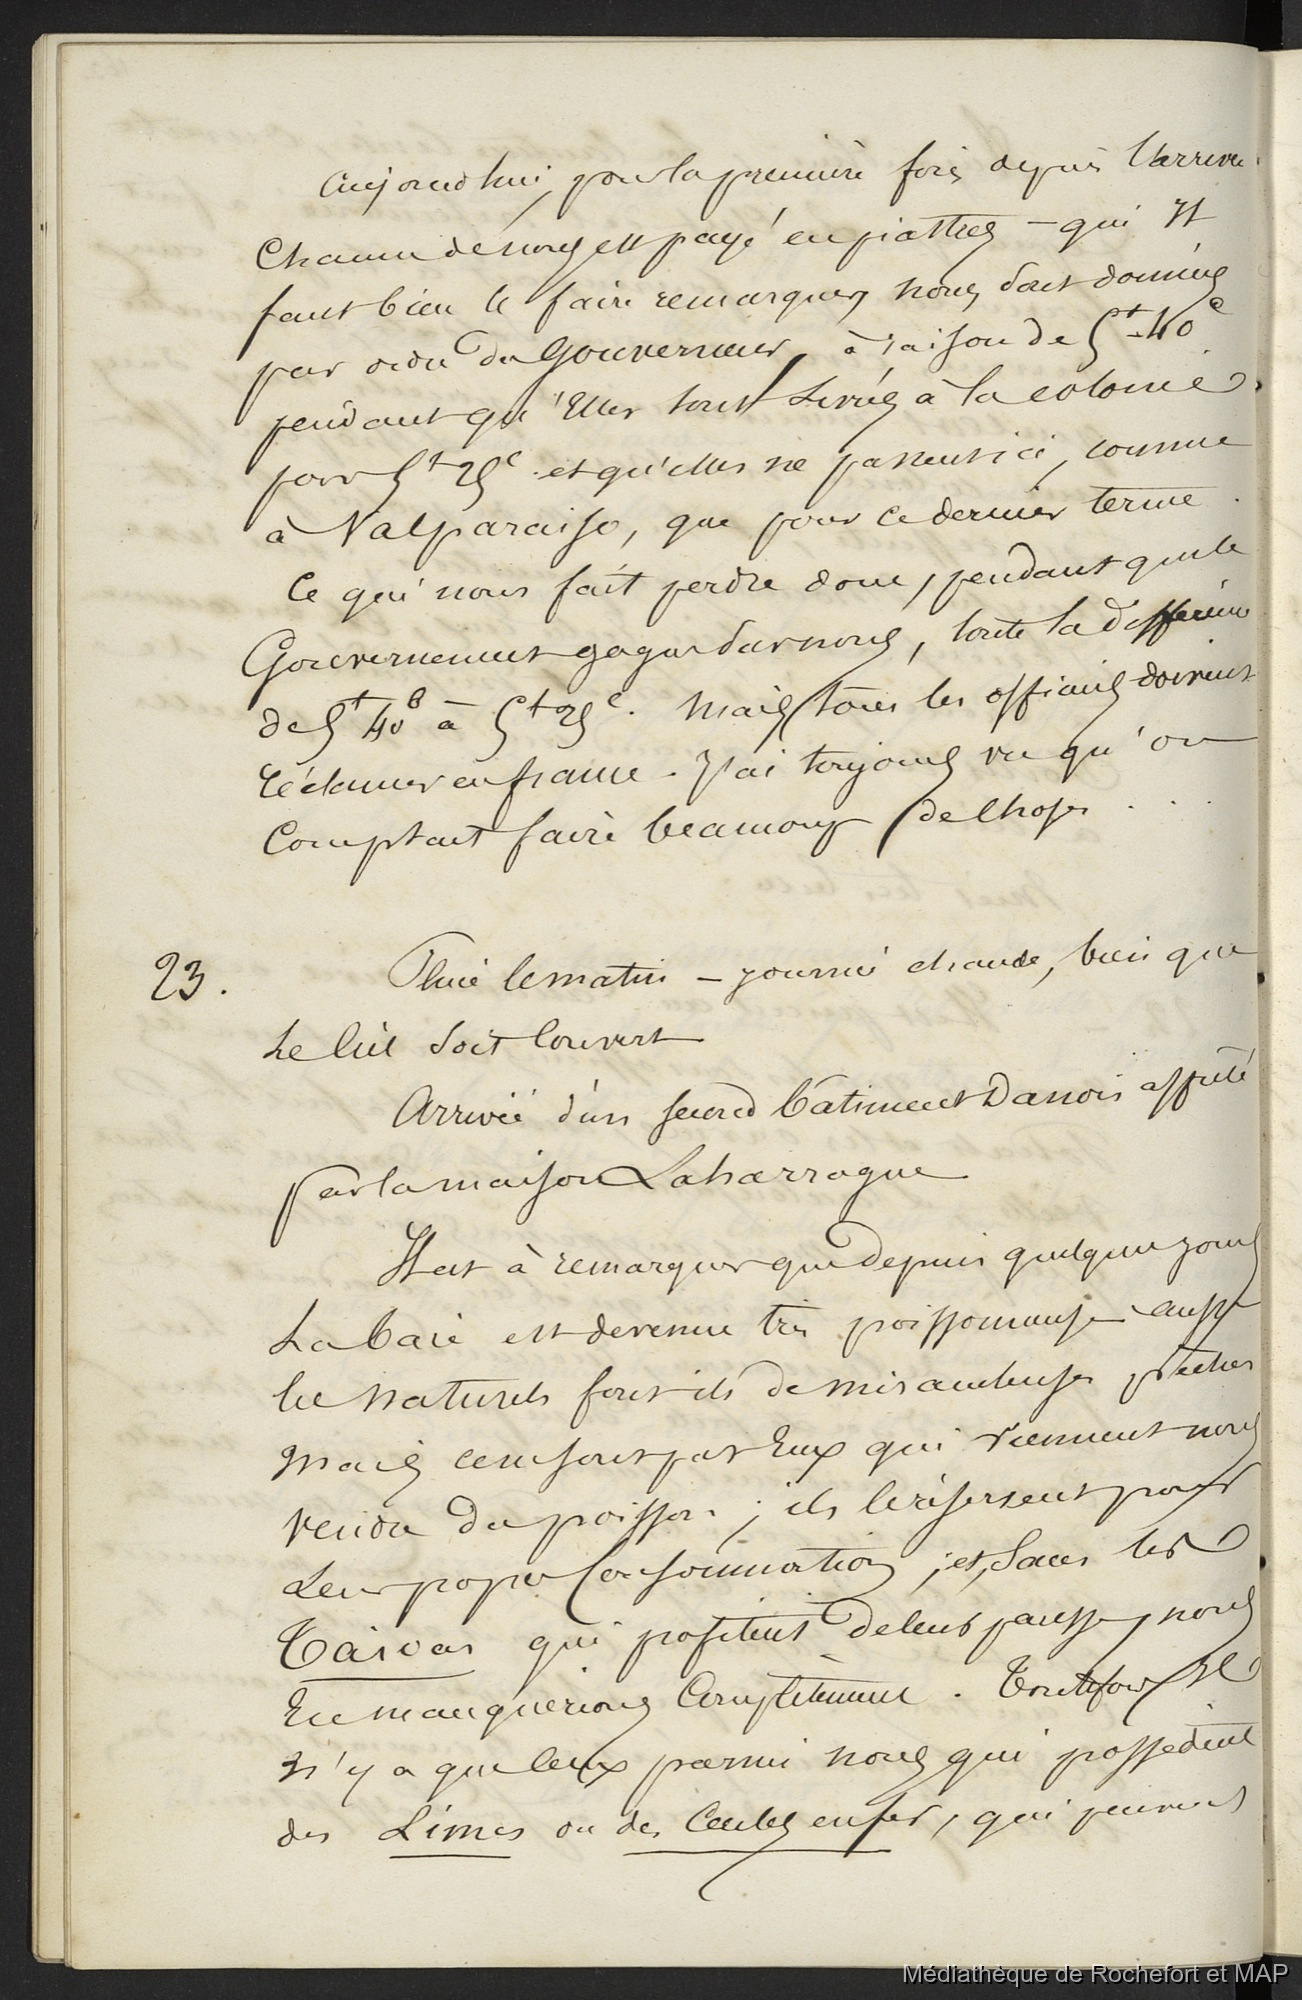 Aujourd'hui, pour la première fois depuis l'arrivée
Chacun de nous est payé en piastres – qui Il
faut bien le faire remarquer nous sont données
par ordre du Gouverneur, à raison de 5f-40c
pendant qu'Elles sont livrées à la colonie
pour 5f 25c. et qu'elles ne passent ici, comme
à Valparaiso, que pour ce dernier terme.
Ce qui nous fait perdre donc, pendant que le
Gouvernement gagne sur nous, toute la différence
de 5f 40c à 5f 25c. Mais tous les officiers doivent
réclamer en france. J'ai toujours vu qu'on
Comptait faire beaucoup de Choses . . .
23. Pluie le matin – journée chaude, bien que
Le Ciel soit Couvert
Arrivée d'un second bâtiment Danois affrété
par la maison Laharrague
Il est à remarquer que depuis quelques jours
La baie est devenue très poissonneuse aussi
les naturels font-ils de miraculeuses pêches
Mais ce ne sont pas Eux qui viennent nous
vendre du poisson ; ils le réservent pour
Leur propre Consommation ; et, sans les
Taïvas qui profitent de leurs passe, nous
En manquerions Complètement. Toutefois Il
N'y a que Ceux parmi nous qui possèdent
des Limes ou des en fer, qui peuvent